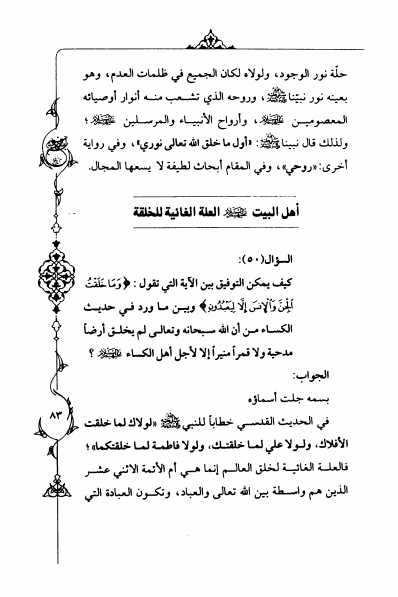 حلّة نور الوجود، ولولاه لكان الجميع في ظلمات العدم، وهو
بعينه نور نبيّنا ﷺ، وروحه الذي تشعب منه أنوار أوصيائه
المعصومين، وأرواح الأنبياء والمرسلين؛
ولذلك قال نبينا ﷺ: «أول ما خلق الله تعالى نوري»، وفي رواية
أخرى: «روحي»، وفي المقام أبحاث لطيفة لا يسعها المجال.
أهل البيت العلة الغائية للخلقة
السؤال(٥٠):
كيف يمكن التوفيق بين الآية التي تقول: ﴿وَمَا خَلَقْتُ
الْجِنَّ وَالْإِنسَ إِلَّا لِيَعْبُدُونِ﴾ وبين ما ورد في حديث
الكساء من أن الله سبحانه وتعالى لم يخلق أرضاً
مدحية ولا قمراً منيراً إلا لأجل أهل الكساء؟
الجواب:
بسمه جلت أسماؤه
في الحديث القدسي خطاباً للنبي ﷺ «لولاك لما خلقت
الأفلاك، ولولا علي لما خلقتك، ولولا فاطمة لما خلقتكما»؛
فالعلة الغائية لخلق العالم إنما هي أم الأئمة الاثني عشر
الذين هم واسطة بين الله تعالى والعباد، وتكون العبادة التي
٨٣